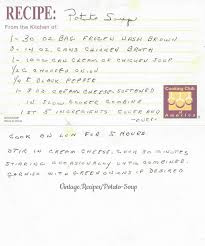 RECIPE: Potato Soup
From the Kitchen of
1- 30 OZ BAG FROZEN HASH BROWN
14 OZ CANS CHICKEN BROTH
1- 10 OZ CAN CREAM OF CHICKEN SOUP
1/2 C CHOPPED ONION
1/4 t BLACK PEPPER
1- 8 OZ CREAM CHEESE SOFTENED
IN SLOW COOKER COMBINE
1ST 5 INGREDIENTS COVER AND
Cooking Club
of America
COOK ON LOW FOR 5 HOURS
STIR IN CREAM CHEESE, COOK 30 MINUTES
STIRRING OCCASIONALLY UNTIL COMBINED.
GARNISH WITH GREEN ONIONS IF DESIRED
Vintage.Recipes/Potato-Soup